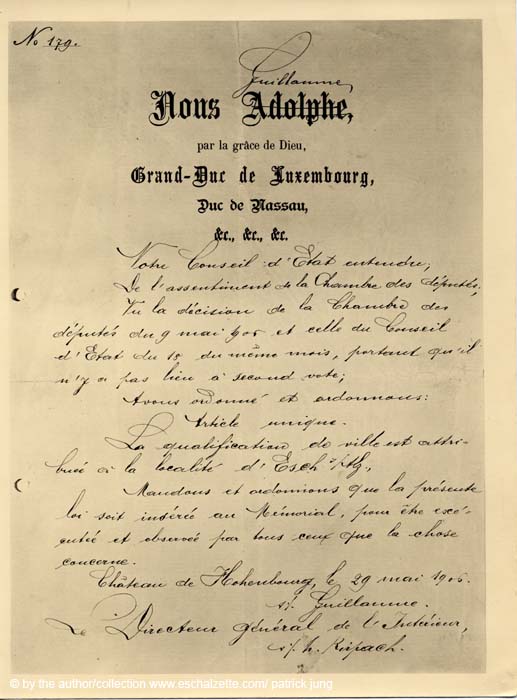 No 179.
Guillaume,
Nous Adolphe,
par la grâce de Dieu,
Grand-Duc de Luxembourg,
Duc de Nassau,
&c., &c., &c.
Notre Conseil d'Etat entendu;
De l'assentiment de la Chambre des députés;
Vu la décision de la Chambre des
députés du 9 mai 906 et celle du Conseil
d'Etat du 18 du même mois, portant qu'il
n'y a pas lieu à second vote;
Avons ordonné et ordonnons:
Article unique.
La qualification de ville est attri-
buée à la localité d'Esch s/Alz,
Mandons et ordonnons que la présente
loi soit insérée au Mémorial, pour être exé-
cutée et observée par tous ceux que la chose
concerne.
Château de Hohenbourg, le 29 mai 1906.
s/. Guillaume.
Le Directeur général de l'Intérieur,
s/. h. Kirpach.
© by the author/collection www.eschalzette.com/ patrick jung